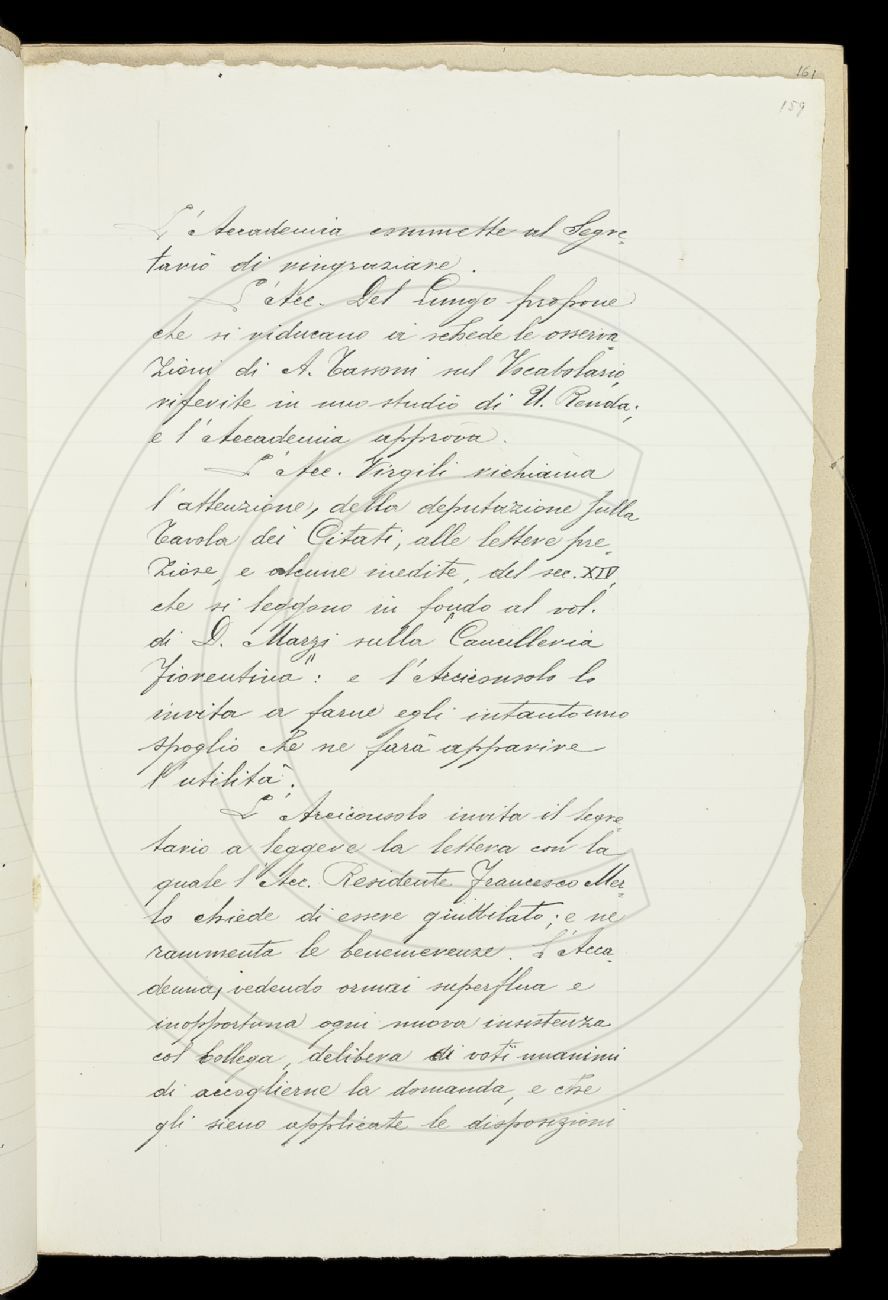 161
159
L'Accademia commette al Segre-
tario di ringraziare.
L'Acc. Del Lungo propone
che si riducano a schede le osserva-
zioni di A. Tassoni sul Vocabolario,
riferite in uno studio di U. Renda;
e l'Accademia approva.
L'Acc. Virgili richiama
l'attenzione, della deputazione sulla
Tavola dei Citati, alle lettere pre-
ziose, e alcune inedite, del sec. XIV,
che si leggono in fondo al vol.
di D. Marzi sulla "Cancelleria
Fiorentina": e l'Arciconsolo lo
invita a farne egli intanto uno
spoglio che ne farà apparire
l'utilità.
L'Arciconsolo invita il Segre-
tario a leggere la lettera con la
quale l'Acc. Residente Francesco Mer-
lo chiede di essere giubilato; e ne
rammenta le benemerenze. L'Acca-
demia, vedendo ormai superflua e
inopportuna ogni nuova insistenza
col Collega, delibera di voti unanimi
di accoglierne la domanda, e che
gli sieno applicate le disposizioni